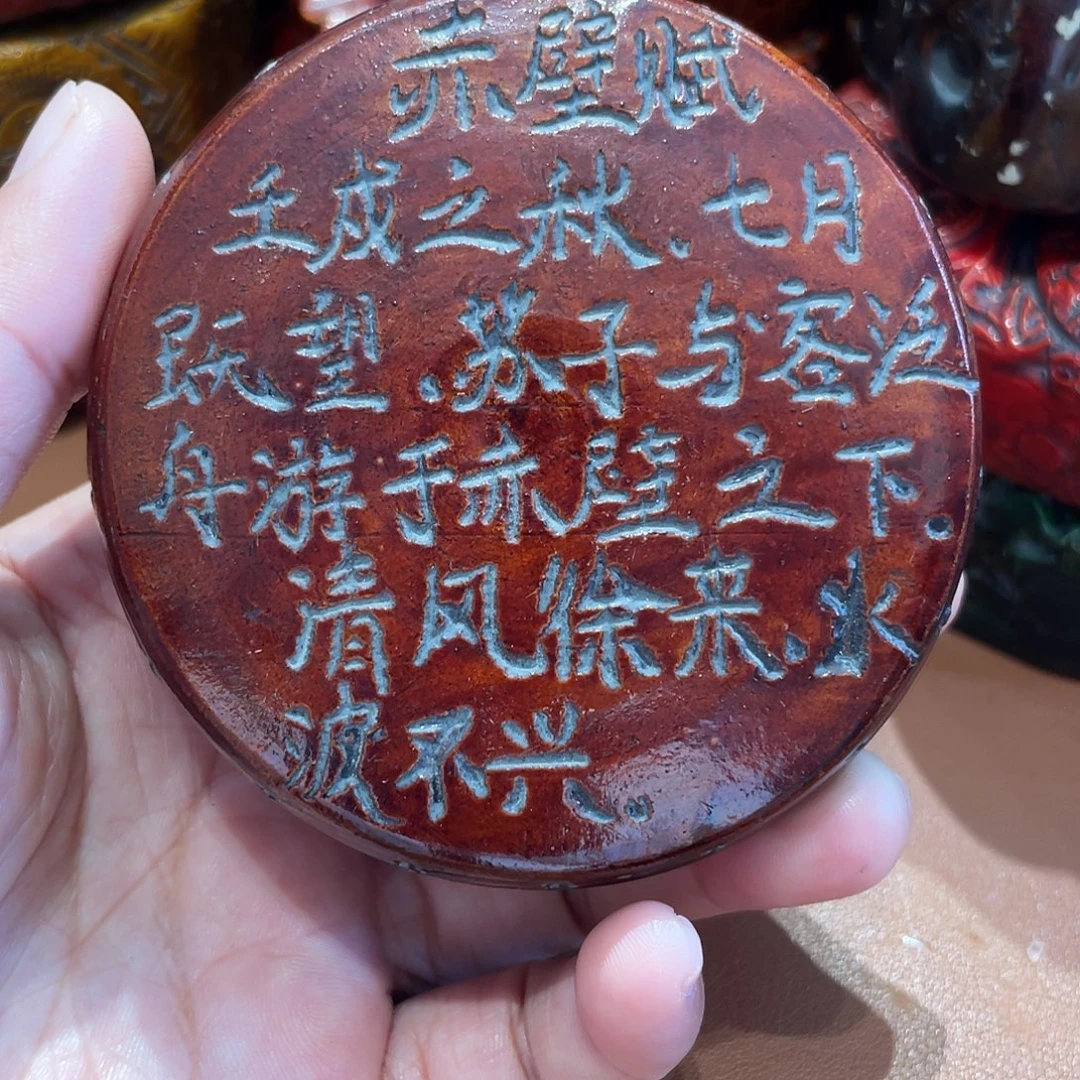 赤壁赋
壬戌之秋、七月
既望、苏子与客泛
舟游于赤壁之下。
清风徐来、水
波不兴。